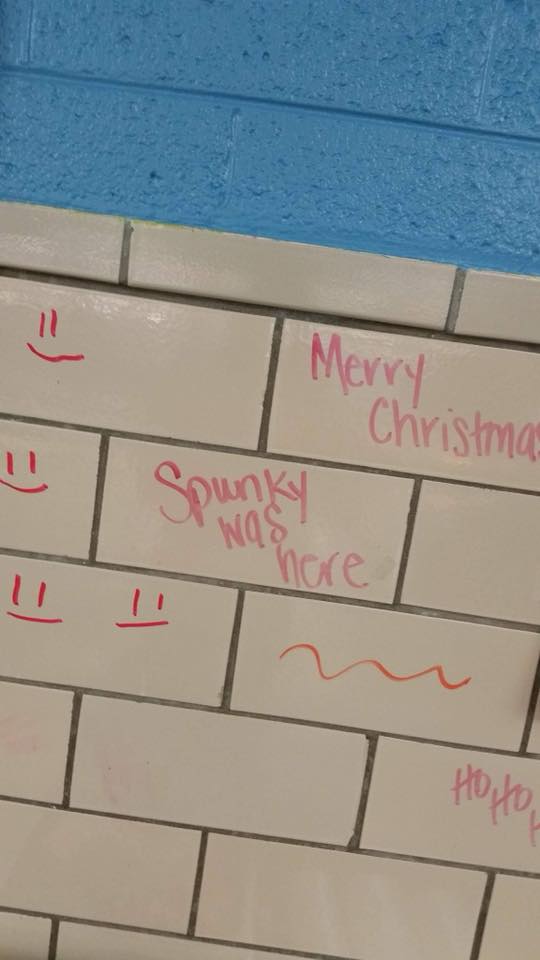 Merry
Christmas
Spunky
was
here
HO HO H